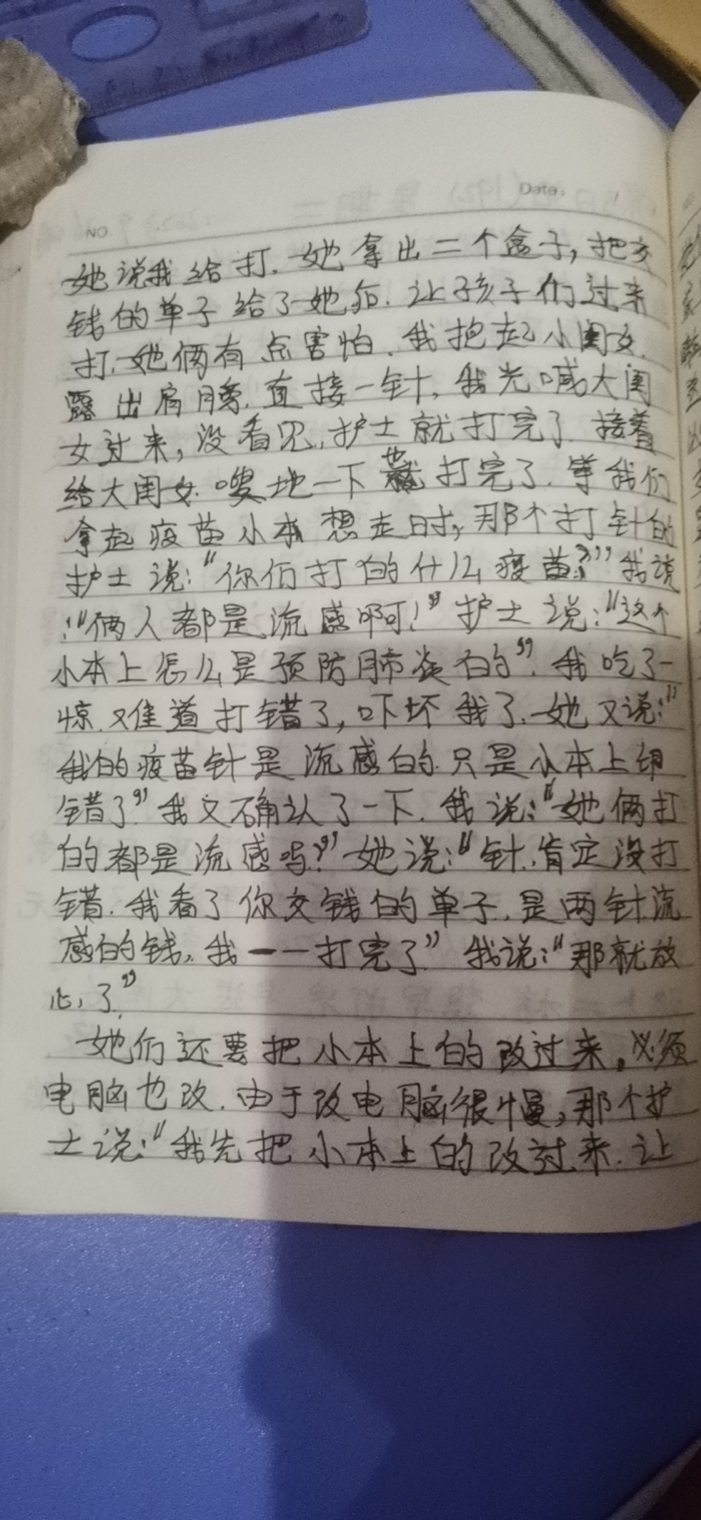 Date:
NO.
她说我给打.她拿出二个盒子,把交
钱的单子给了她后.让孩子们过来
打.她俩有点害怕.我抱起小闺女.
露出肩膀.直接一针.我光喊大闺
女过来,没看见,护士就打完了.接着
给大闺女.嗖地一下也打完了.等我们
拿起疫苗小本想走时,那个打针的
护士说:“你们打的什么疫苗?”我说
:“俩人都是流感啊!”护士说:“这个
小本上怎么是预防肺炎的”.我吃了一
惊.难道打错了,吓坏我了.她又说:“
我的疫苗针是流感的.只是小本上印
错了”我又确认了一下.我说:“她俩打
的都是流感吗?”她说:“针.肯定没打
错.我看了你交钱的单子.是两针流
感的钱,我一一打完了”我说:“那就放
心了.”
她们还要把小本上的改过来,必须
电脑也改.由于改电脑很慢,那个护
士说:“我先把小本上的改过来.让